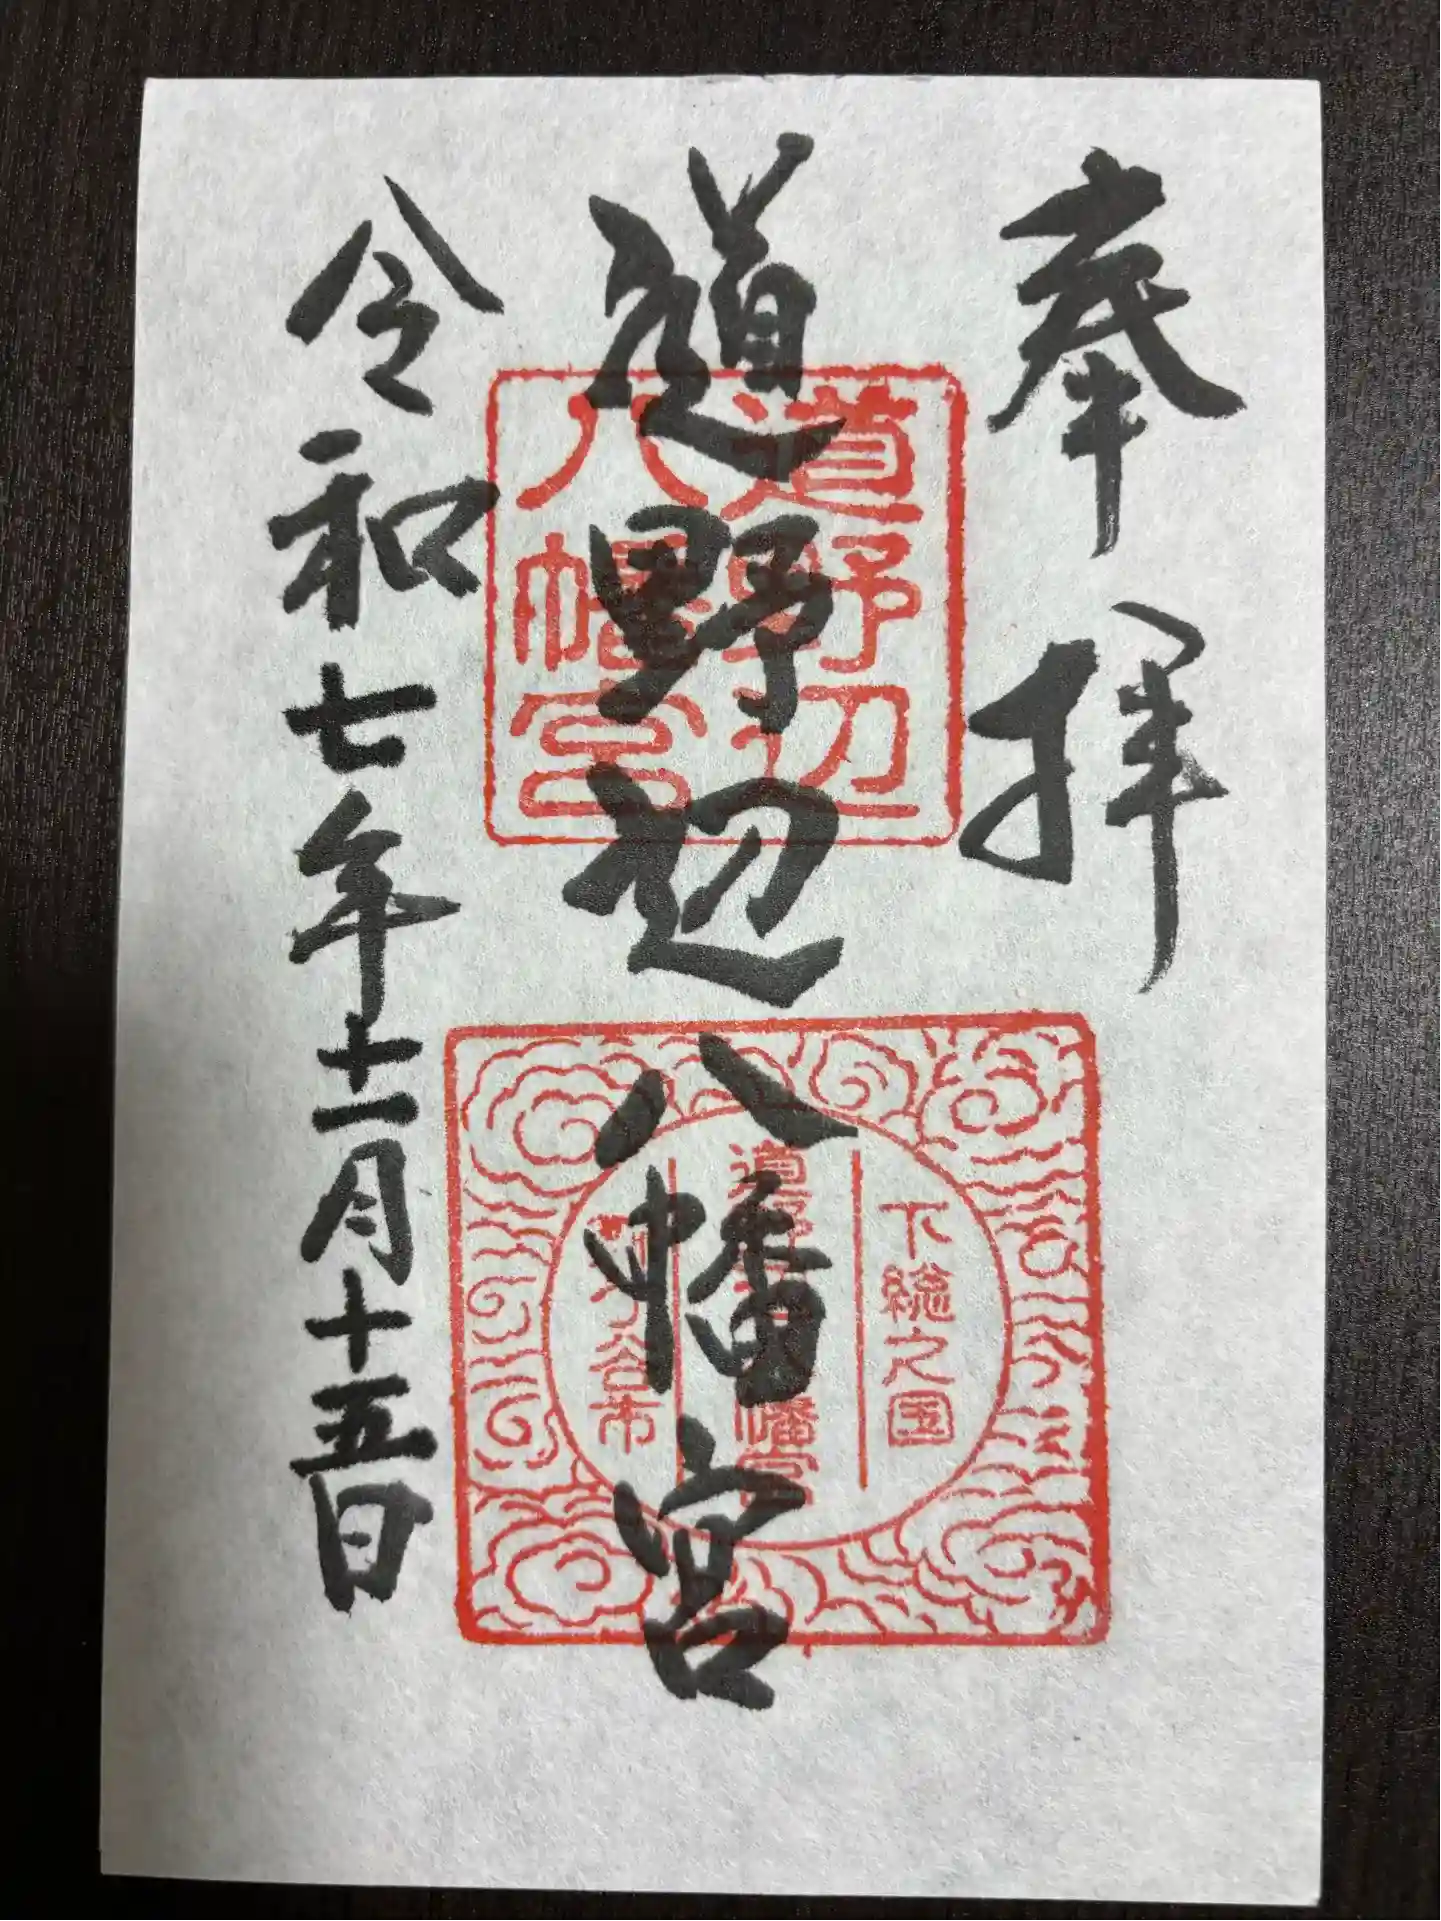 奉拝
道野辺八幡宮
令和七年十一月十五日
道野辺
八幡宮
下総之国
道野辺八幡宮
谷市